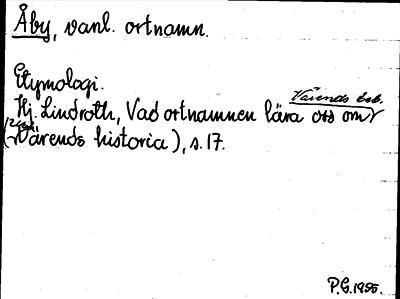 Åby, vanl. ortnamn.
Etymologi.
Värends beb.
Hj. Lindroth, Vad ortnamnen lära oss om
(Värends historia), s. 17.
P.G. 1995.